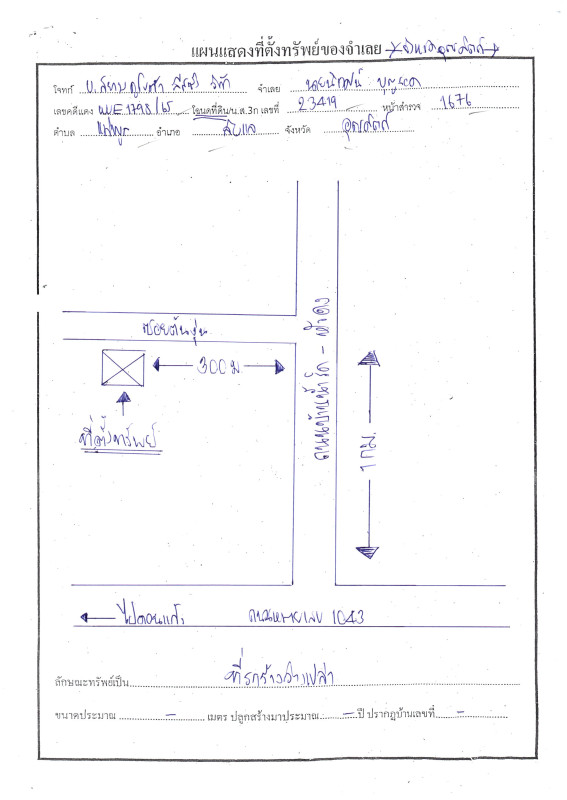 แผนแสดงที่ตั้งทรัพย์ของจำเลย
โจทก์ บ. สยาม จำเลย นายนิ
เลขคดีแดง ผบE 1798/65 โฉนดที่ดิน/น.ส.3ก เลขที่ 23419 หน้าสำรวจ 1676
ตำบล อำเภอ ลับแล จังหวัด อุตรดิตถ์
ซอยต้นงุ่น
300 ม
ที่ตั้งทรัพย์
1 กม.
ไปดอนแก้ว ถนนหมายเลข 1043
ลักษณะทรัพย์เป็น ที่รกร้างว่างเปล่า
ขนาดประมาณ - เมตร ปลูกสร้างมาประมาณ - ปี ปรากฏบ้านเลขที่ -